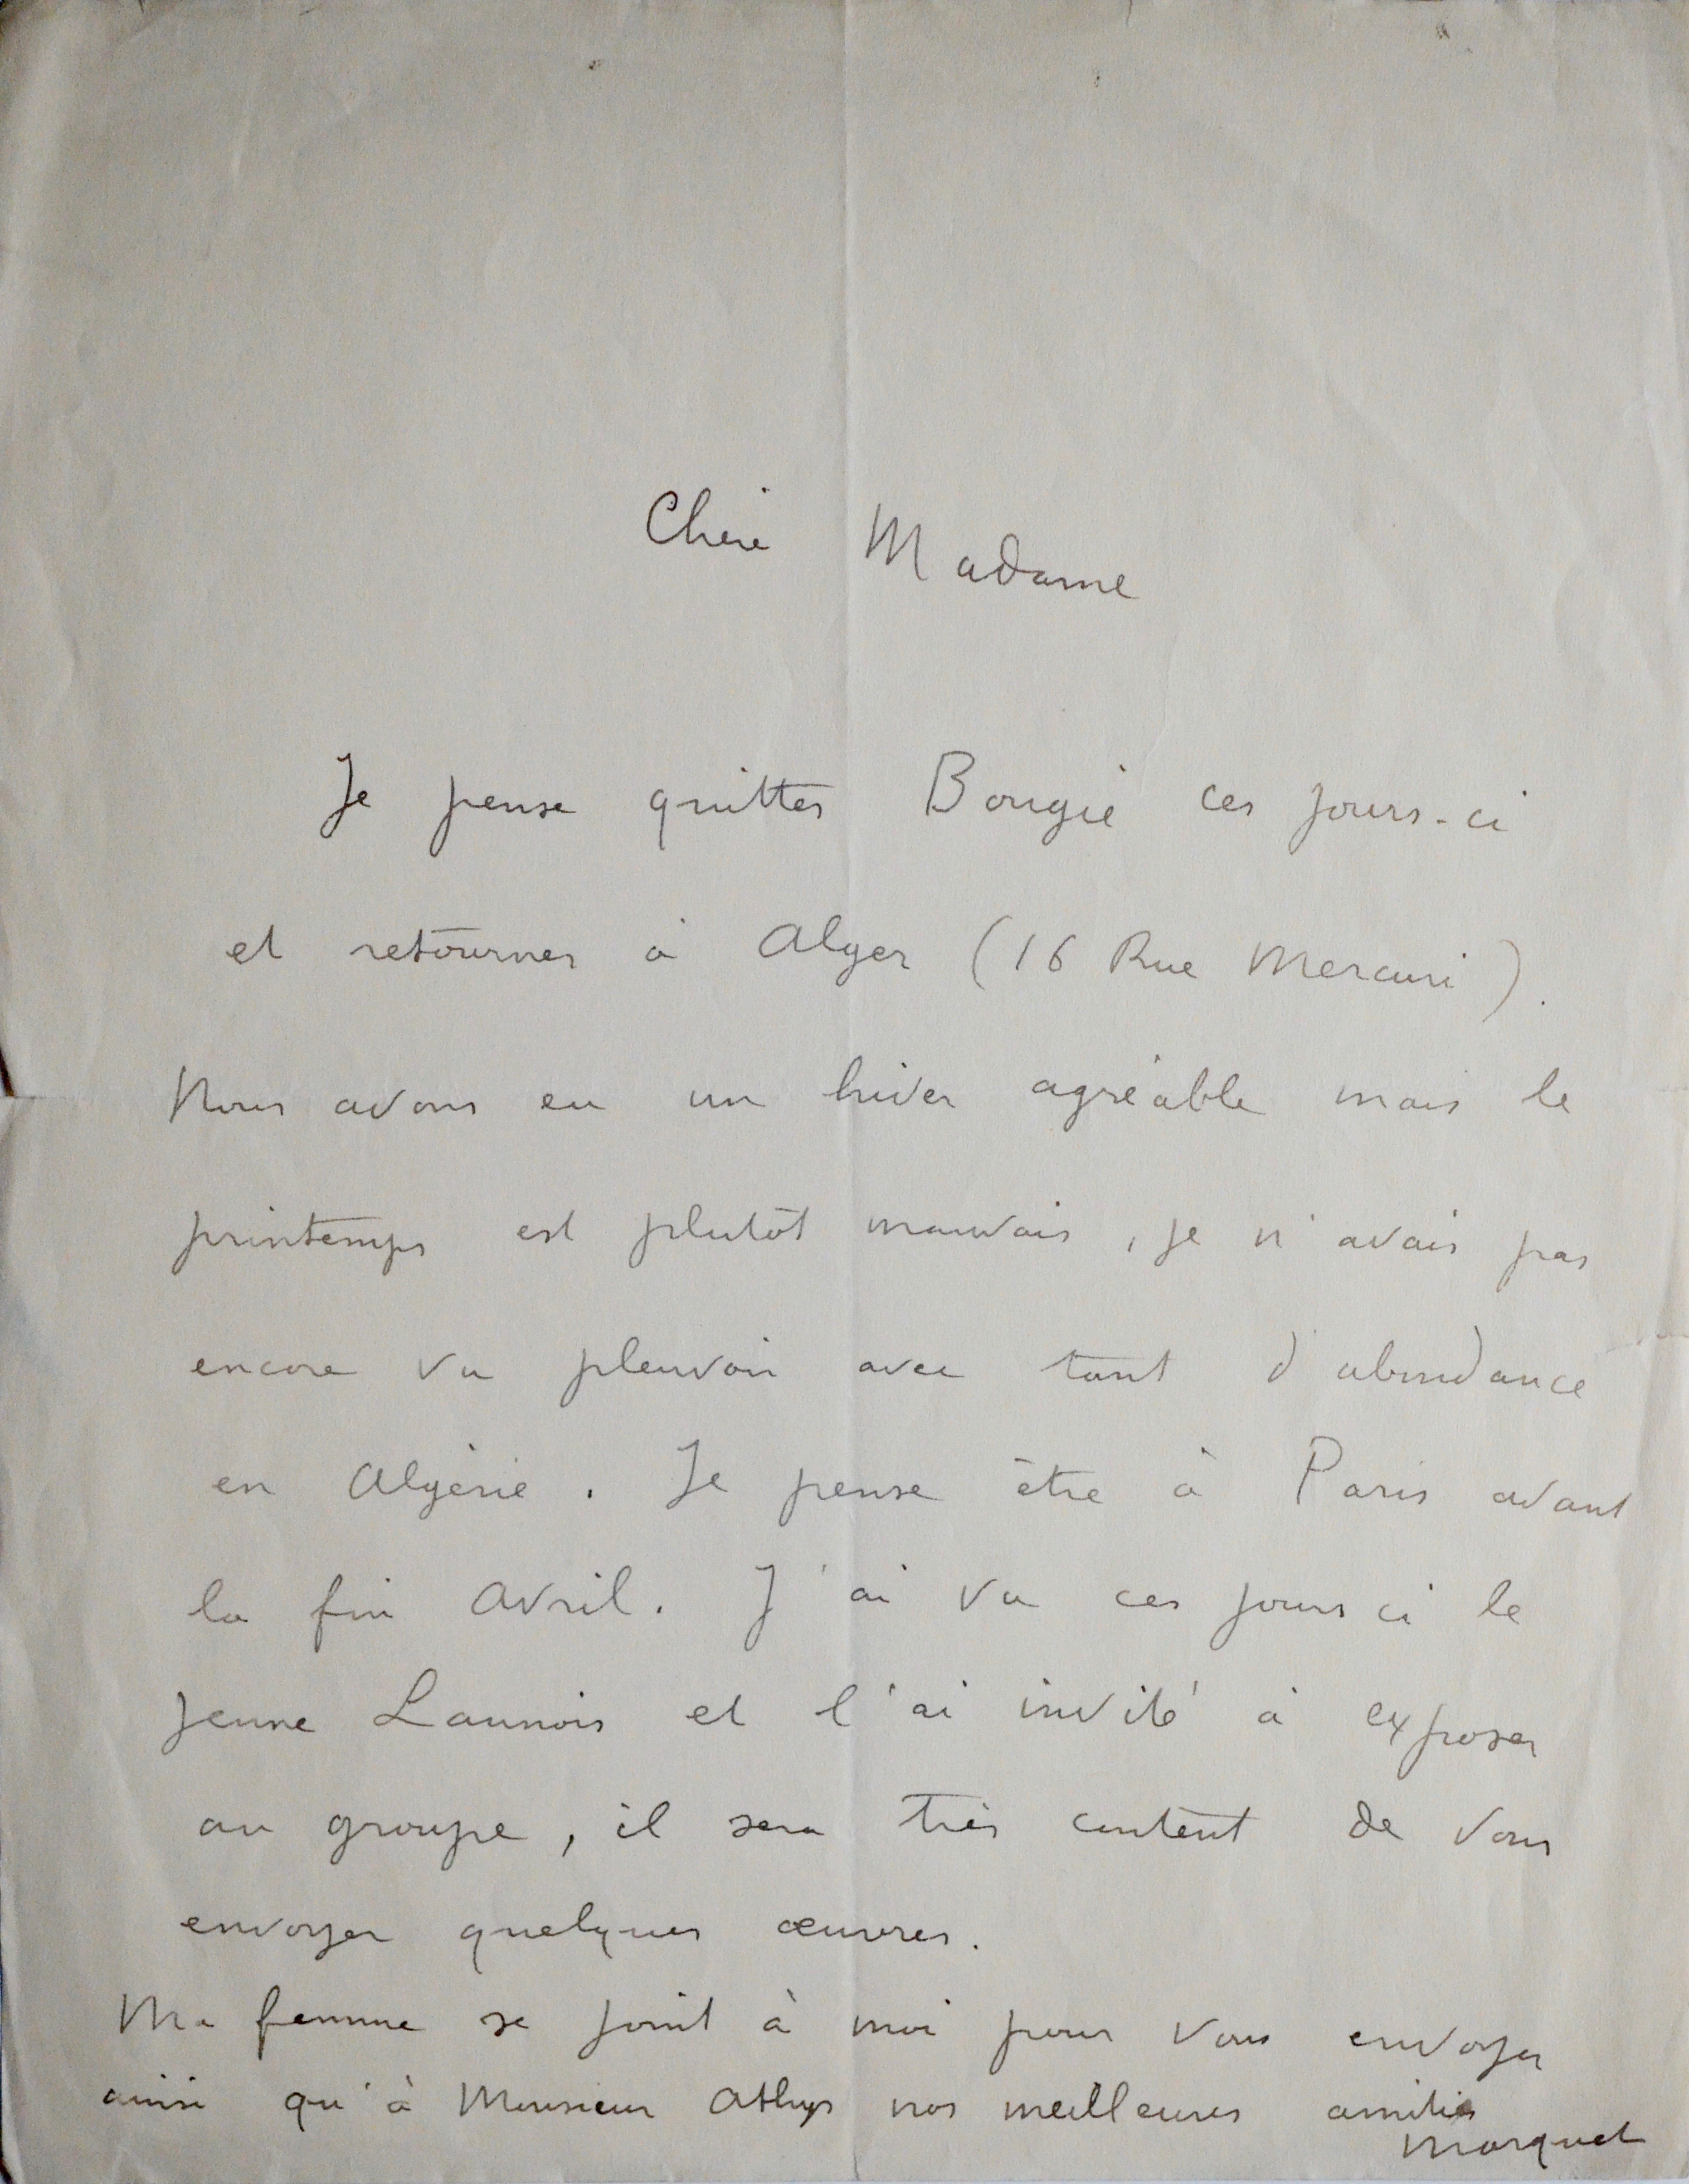 Chère Madame
Je pense quitter Bougie ces jours-ci
et retourner à Alger (16 Rue Mercuri).
Nous avons eu un hiver agréable mais le
printemps est plutôt mauvais, je n'avais pas
encore vu pleuvoir avec tant d'abondance
en Algérie. Je pense être à Paris avant
la fin Avril. J'ai vu ces jours ci le
jeune Launois et l'ai invité à exposer
au groupe, il sera très content de vous
envoyer quelques œuvres.
Ma femme se joint à moi pour vous envoyer
ainsi qu'à Monsieur Athys nos meilleures amitiés
Marquet